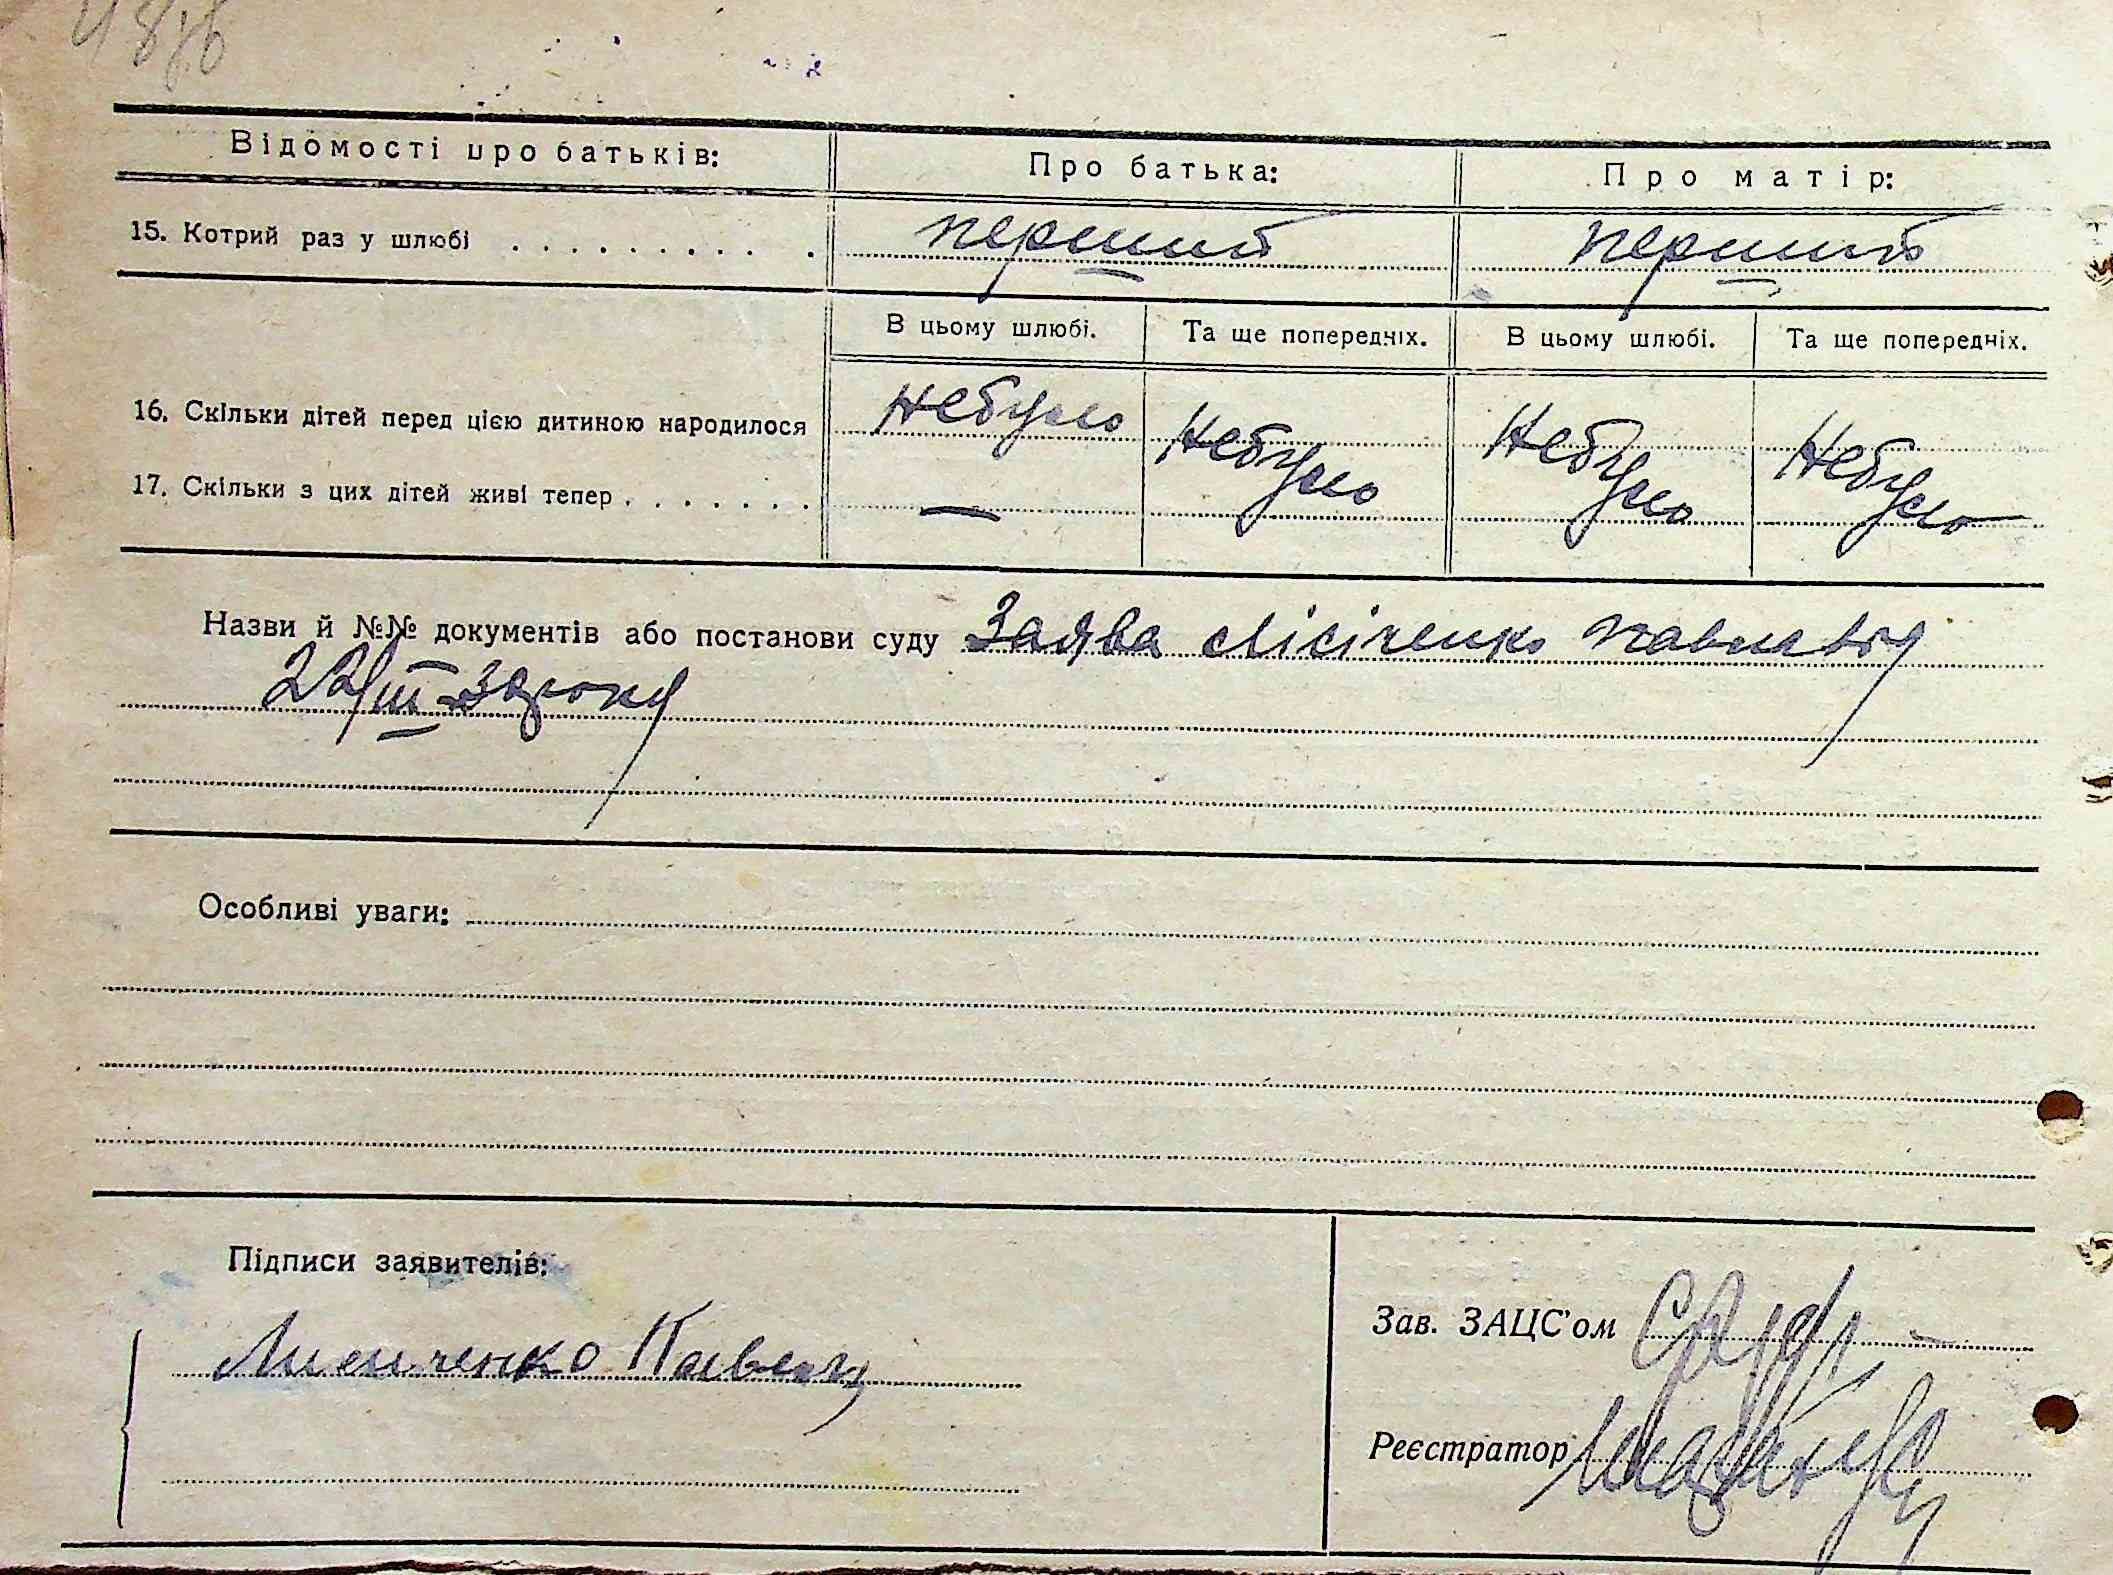 Відомості про батьків: Про батька: Про матір:
15. Котрий раз у шлюбі . . . . . . . . . . перший перший
В цьому шлюбі. Та ще попередніх. В цьому шлюбі. Та ще попередніх.
16. Скільки дітей перед цією дитиною народилося небуло Небуло Небуло Небуло
17. Скільки з цих дітей живі тепер . . . . . . . —
Назви й №№ документів або постанови суду Заява Лісіченко Павла від
22/III-32 року
Особливі уваги:
Підписи заявителів:
Лисиченко Павел
Зав. ЗАЦС'ом
Реєстратор